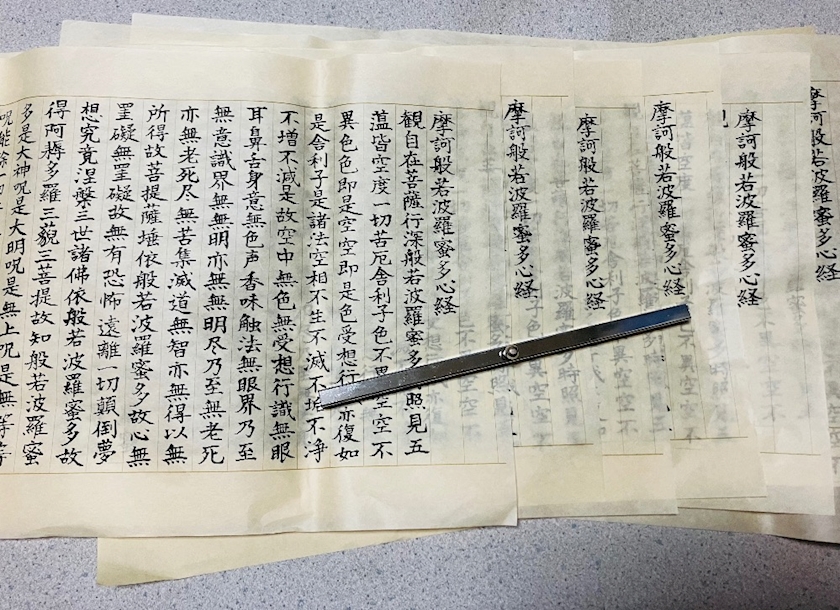 摩訶般若波羅蜜多心経
摩訶般若波羅蜜多心経
摩訶般若波羅蜜多心経
摩訶般若波羅蜜多心経
摩訶般若波羅蜜多心経
摩訶般若波羅蜜多心経
観自在菩薩行深般若波羅蜜多照見五
薀皆空度一切苦厄舎利子色不異空空不
異色色即是空空即是色受想行亦復如
是舎利子是諸法空相不生不滅不垢不浄
不増不減是故空中無色無受想行識無眼
耳鼻舌身意無色声香味触法無眼界乃至
無意識界無無明亦無無明尽乃至無老死
亦無老死尽無苦集滅道無智亦無得以無
所得故菩提薩埵依般若波羅蜜多故心無
罣礙無罣礙故無有恐怖遠離一切顛倒夢
想究竟涅槃三世諸佛依般若波羅蜜多故
得阿耨多羅三藐三菩提故知般若波羅蜜
多是大神呪是大明呪是無上呪是無等等
呪能除一切